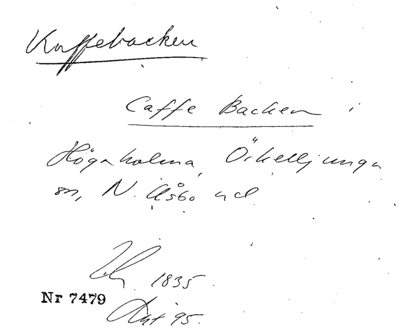 Kaffebacken
Caffe Backen i
Högaholma, Örkelljunga
sn, N. Åsbo hd
1835
Nr 7479
Akt 95.